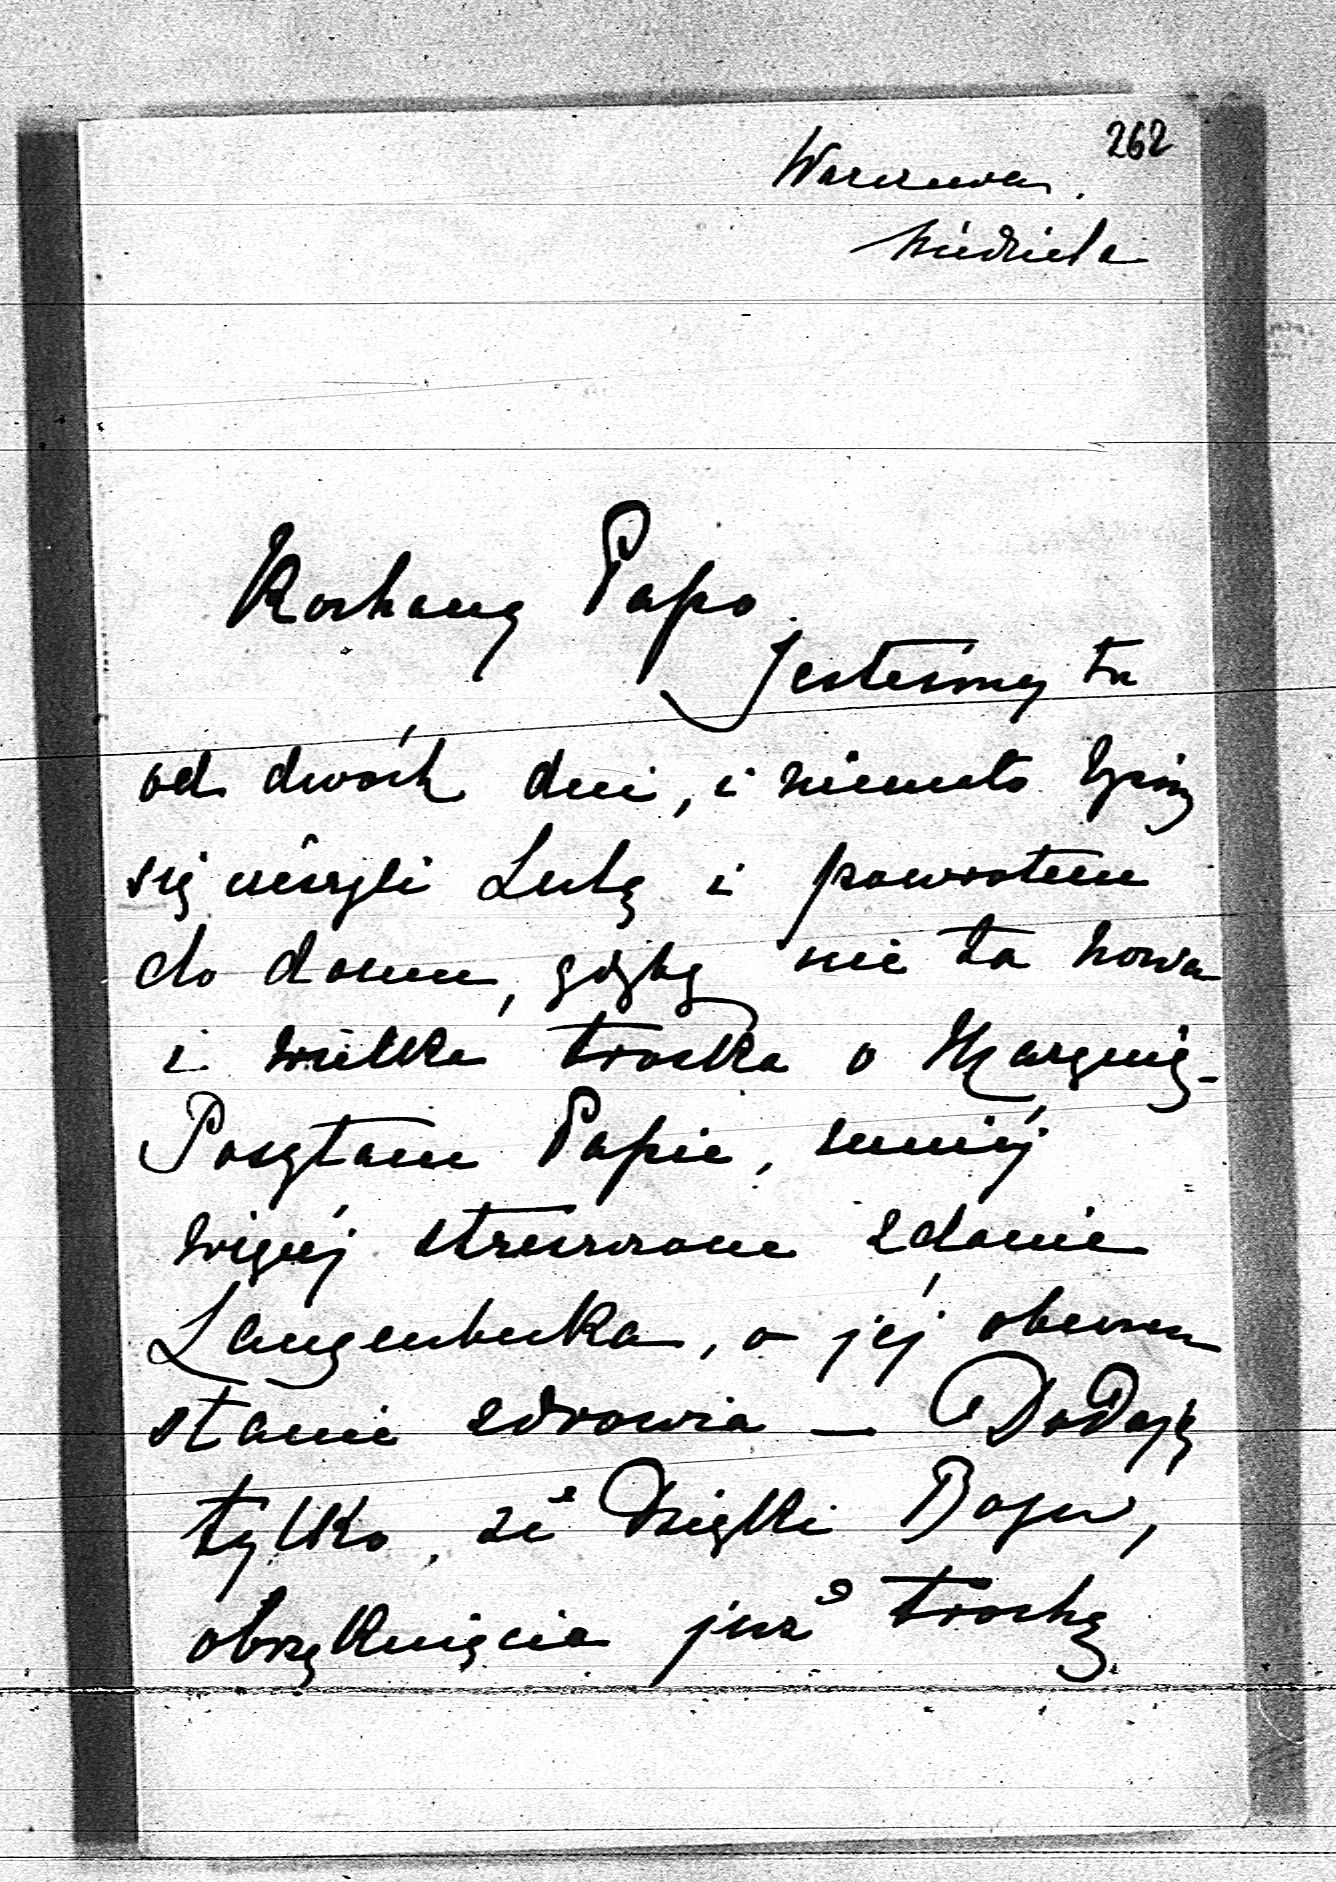 262
Warszawa,
Niedziela
Kochany Papo
Jesteśmy tu
od dwóch dni, i niemało byśmy
się cieszyli Lulą i powrotem
do domu, gdyby nie ta nowa
i wielka troska o Marynię.
Posyłam Papie, mniéj
więcéj streszczone zdanie
Langenbecka, o jéj obecnem
stanie zdrowia — Dodaję
tylko, że Dzięki Bogu,
obrzęknięcia już trochę